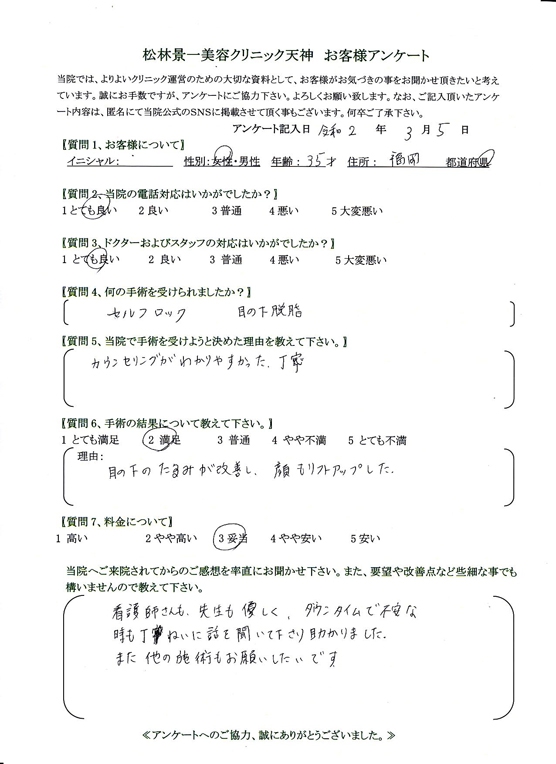 松林景一美容クリニック天神　お客様アンケート
当院では、よりよいクリニック運営のための大切な資料として、お客様がお気づきの事をお聞かせ頂きたいと考え
ています。誠にお手数ですが、アンケートにご協力下さい。よろしくお願い致します。なお、ご記入頂いたアンケ
ート内容は、匿名にて当院公式のSNSに掲載させて頂く事もございます。何卒ご了承下さい。
アンケート記入日 令和2 年 3 月 5 日
【質問1、お客様について】
イニシャル： 性別：女性・男性 年齢：35才 住所： 福岡 都道府県
【質問2、当院の電話対応はいかがでしたか？】
1とても良い 2良い 3普通 4悪い 5大変悪い
【質問3、ドクターおよびスタッフの対応はいかがでしたか？】
1とても良い 2 良い 3 普通 4悪い 5大変悪い
【質問4、何の手術を受けられましたか？】
セルフロック 目の下脱脂
【質問5、当院で手術を受けようと決めた理由を教えて下さい。】
カウンセリングがわかりやすかった、丁寧
【質問6、手術の結果について教えて下さい。】
1とても満足 2 満足 3 普通 4 やや不満 5 とても不満
理由：
目の下のたるみが改善し、顔もリフトアップした.
【質問7、料金について】
1 高い 2やや高い 3妥当 4やや安い 5安い
当院へご来院されてからのご感想を率直にお聞かせ下さい。また、要望や改善点など些細な事でも
構いませんので教えて下さい。
看護師さんも、先生も優しく、ダウンタイムで不安な
時も丁ねいに話を聞いて下さり助かりました.
また他の施術もお願いしたいです
≪アンケートへのご協力、誠にありがとうございました。≫